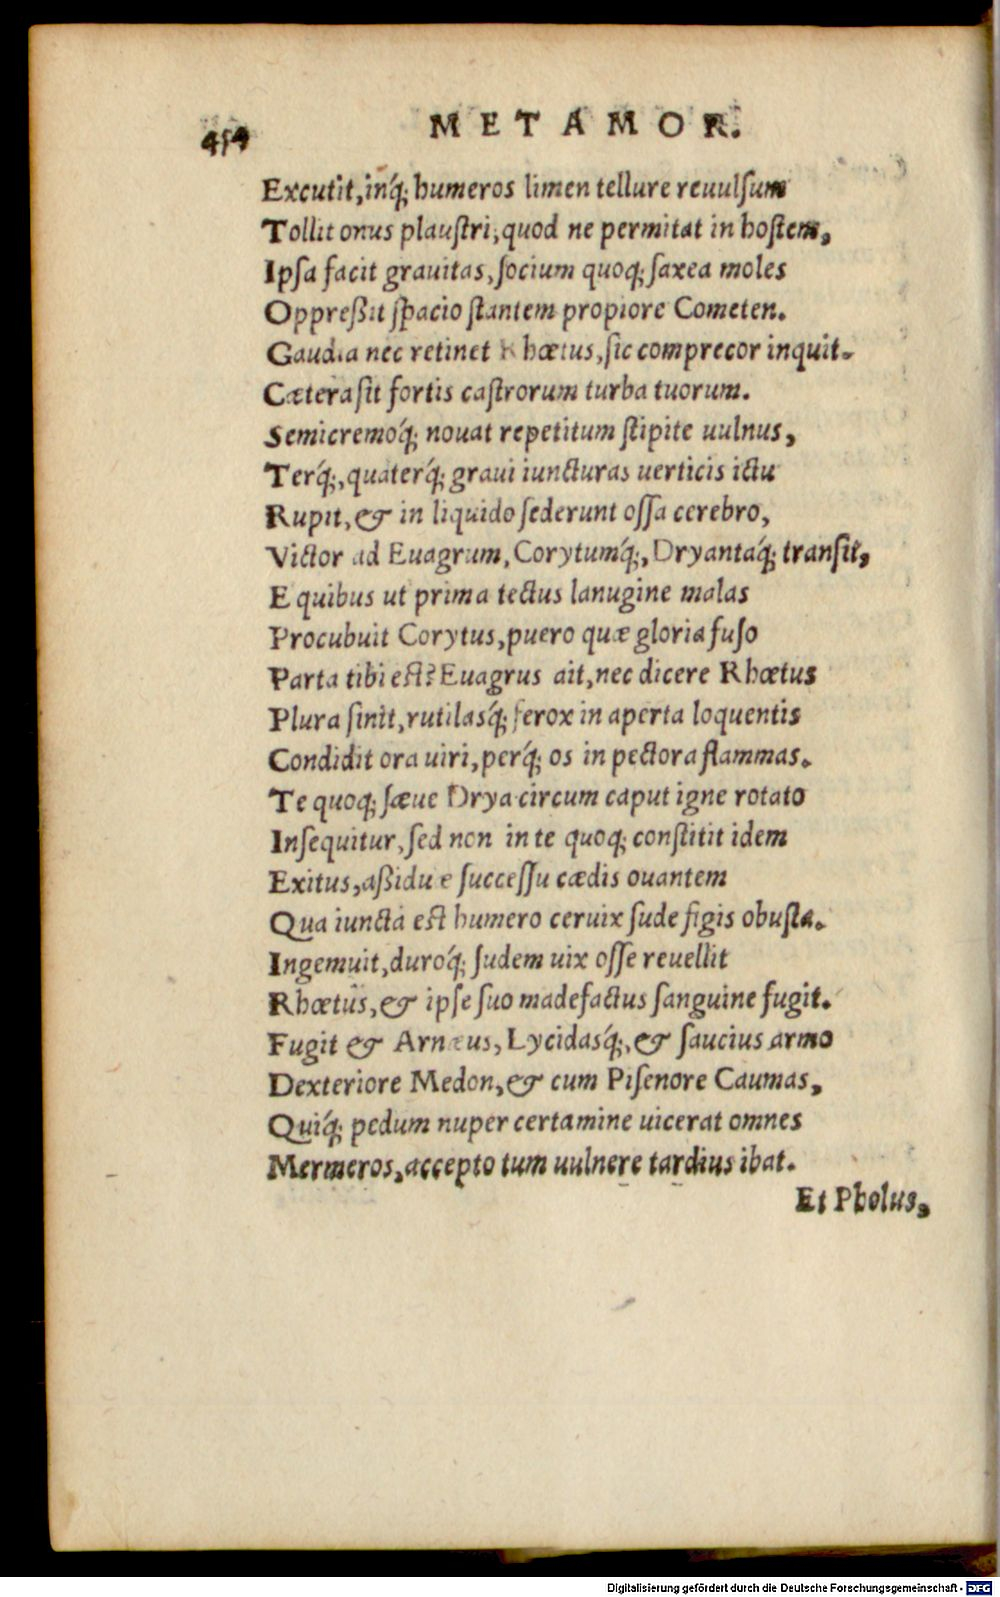 454 METAMOR.
Excutit, inq́; humeros limen tellure reuulsum
Tollit onus plaustri, quod ne permitat in hostem,
Ipsa facit grauitas, socium quoq; saxea moles
Oppreßit spacio stantem propiore Cometen.
Gaudia nec retinet Rhœtus, sic comprecor inquit.
Cætera sit fortis castrorum turba tuorum.
Semicremoq́; nouat repetitum stipite uulnus,
Terq́;, quaterq́; graui iuncturas uerticis ictu
Rupit, & in liquido sederunt ossa cerebro,
Victor ad Euagrum, Corytumq́;, Dryantaq́; transit,
E quibus ut prima tectus lanugine malas
Procubuit Corytus, puero quæ gloria fuso
Parta tibi est? Euagrus ait, nec dicere Rhœtus
Plura sinit, rutilasq́; ferox in aperta loquentis
Condidit ora uiri, perq́; os in pectora flammas.
Te quoq; sæue Drya circum caput igne rotato
Insequitur, sed non in te quoq; constitit idem
Exitus, aßidue successu cædis ouantem
Qua iuncta est humero ceruix sude figis obusta.
Ingemuit, duroq́; sudem uix osse reuellit
Rhœtus, & ipse suo madefactus sanguine fugit.
Fugit & Arnæus, Lycidasq́;, & saucius armo
Dexteriore Medon, & cum Pisenore Caumas,
Quiq́; pedum nuper certamine uicerat omnes
Mermeros, accepto tum uulnere tardius ibat.
Et Pholus,
Digitalisierung gefördert durch die Deutsche Forschungsgemeinschaft - DFG